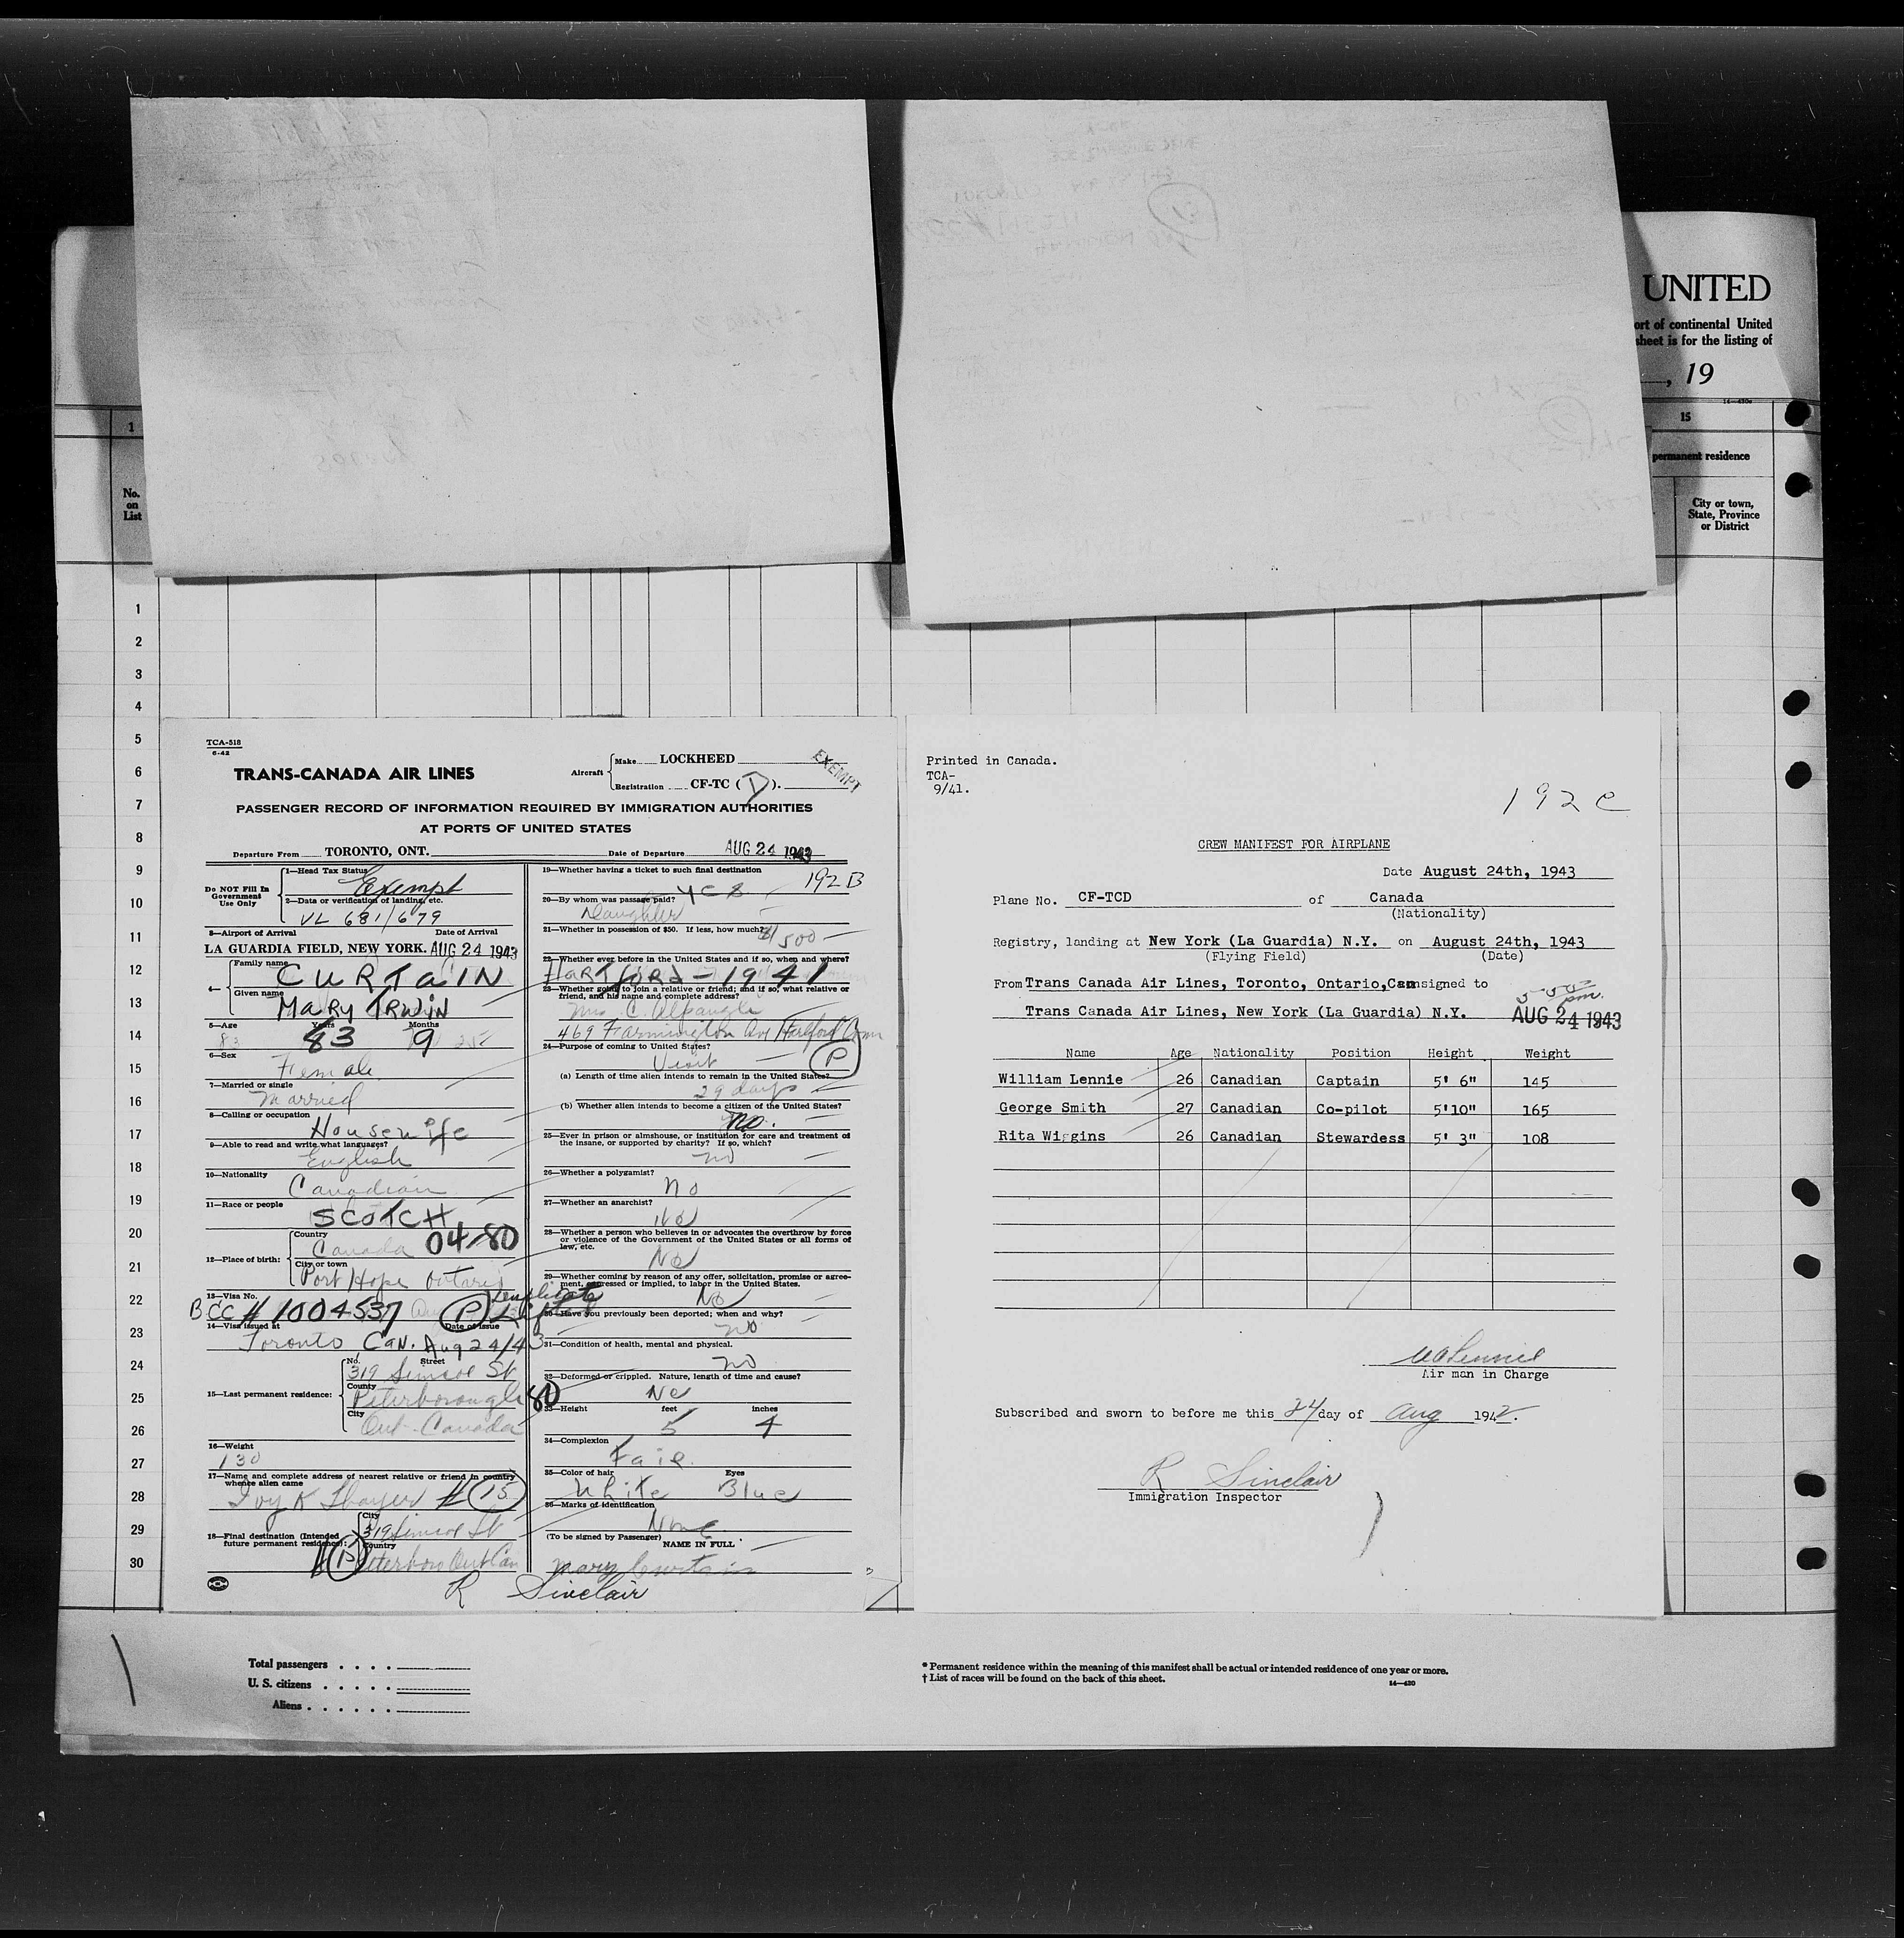 UNITED
ort of continental United
sheet is for the listing of
, 19
14—430e
1
15
permanent residence
No.
on
List
City or town,
State, Province
or District
1
2
3
4
5
6
7
8
9
10
11
12
13
14
15
16
17
18
19
20
21
22
23
24
25
26
27
28
29
30
TCA-518
6-42
TRANS-CANADA AIR LINES
Aircraft
Make LOCKHEED
Registration CF-TC (D).
EXEMPT
PASSENGER RECORD OF INFORMATION REQUIRED BY IMMIGRATION AUTHORITIES
AT PORTS OF UNITED STATES
Departure From TORONTO, ONT.
Date of Departure AUG 24 1943
Do NOT Fill In
Government
Use Only
1—Head Tax Status
Exempt
2—Data or verification of landing, etc.
VL 681/679
3—Airport of Arrival Date of Arrival
LA GUARDIA FIELD, NEW YORK. AUG 24 1943
4—
Family name
CURTAIN
Given name
MARY IRWIN
5—Age Years Months
83 83 9
6—Sex
Female
7—Married or single
Married
8—Calling or occupation
Housewife
9—Able to read and write what languages?
English
10—Nationality
Canadian
11—Race or people
SCOTCH
12—Place of birth:
Country
Canada 04-80
City or town
Port Hope Ontario
13—Visa No.
BCC # 1004537 (P)
Date of issue
14—Visa issued at
Toronto CAN. Aug 24/43
15—Last permanent residence:
No. Street
319 Simcoe St
County
Peterborough 80
City
Ont - Canada
16—Weight
130
17—Name and complete address of nearest relative or friend in country
whence alien came
Ivy K Thayer # (15)
18—Final destination (Intended
future permanent residence):
City
319 Simcoe St
Country
Peterboro Ont Can
R Sinclair
19—Whether having a ticket to such final destination
yes 192 B
20—By whom was passage paid?
Daughter
21—Whether in possession of $50. If less, how much?
$1500 —
22—Whether ever before in the United States and if so, when and where?
HARTFORD — 1941
23—Whether going to join a relative or friend; and if so, what relative or
friend, and his name and complete address?
Mrs. C.
469 Farmington Av Hartford Conn
24—Purpose of coming to United States?
Visit (P)
(a) Length of time alien intends to remain in the United States?
29 days
(b) Whether alien intends to become a citizen of the United States?
no.
25—Ever in prison or almshouse, or institution for care and treatment of
the insane, or supported by charity? If so, which?
no
26—Whether a polygamist?
no
27—Whether an anarchist?
No
28—Whether a person who believes in or advocates the overthrow by force
or violence of the Government of the United States or all forms of
law, etc.
No
29—Whether coming by reason of any offer, solicitation, promise or agree-
ment, expressed or implied, to labor in the United States.
No
30—Have you previously been deported; when and why?
no
31—Condition of health, mental and physical.
no
32—Deformed or crippled. Nature, length of time and cause?
No
33—Height feet inches
5 4
34—Complexion
Fair
35—Color of hair Eyes
White Blue
36—Marks of identification
None
(To be signed by Passenger) NAME IN FULL
Mary Curtain
Printed in Canada.
TCA-
9/41.
192 C
CREW MANIFEST FOR AIRPLANE
Date August 24th, 1943
Plane No. CF-TCD of Canada
(Nationality)
Registry, landing at New York (La Guardia) N.Y. on August 24th, 1943
(Flying Field) (Date)
From Trans Canada Air Lines, Toronto, Ontario, Consigned to
Trans Canada Air Lines, New York (La Guardia) N.Y.
pm.
AUG 24 1943
Name Age Nationality Position Height Weight
William Lennie 26 Canadian Captain 5' 6" 145
George Smith 27 Canadian Co-pilot 5'10" 165
Rita Wiggins 26 Canadian Stewardess 5' 3" 108
Air man in Charge
Subscribed and sworn to before me this 24 day of Aug 1942.
R Sinclair
Immigration Inspector
Total passengers . . . .
U. S. citizens . . . . .
Aliens . . . . . .
* Permanent residence within the meaning of this manifest shall be actual or intended residence of one year or more.
† List of races will be found on the back of this sheet.
14—430